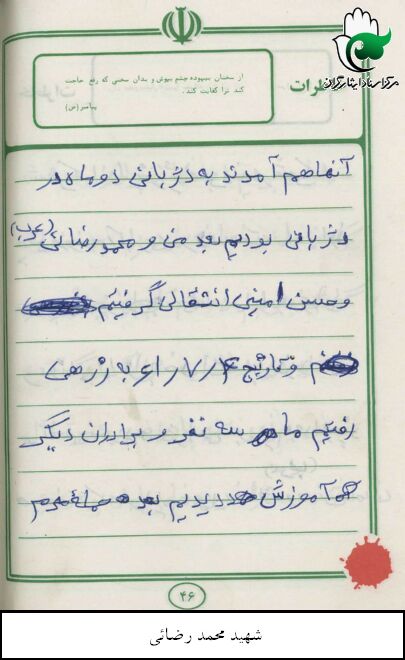 مرکز اسناد ایثارگران
خاطرات
از سخنان بیهوده چشم بپوش و بدان سخنی که رفع حاجت
کند ترا کفایت کند.
پیامبر(ص)
آنها هم آمدند به دژبانی دو ماه در
دژبانی بودیم بعد من و محمد رضائی (عرب)
و حسن امینی انتقالی گرفتیم
و تاریخ ۶۱/۷/۴ به زرهی
رفتیم ما سه نفر و برادران دیگر
آموزش دیدیم بعد حمله
۴۶
شهید محمد رضائی